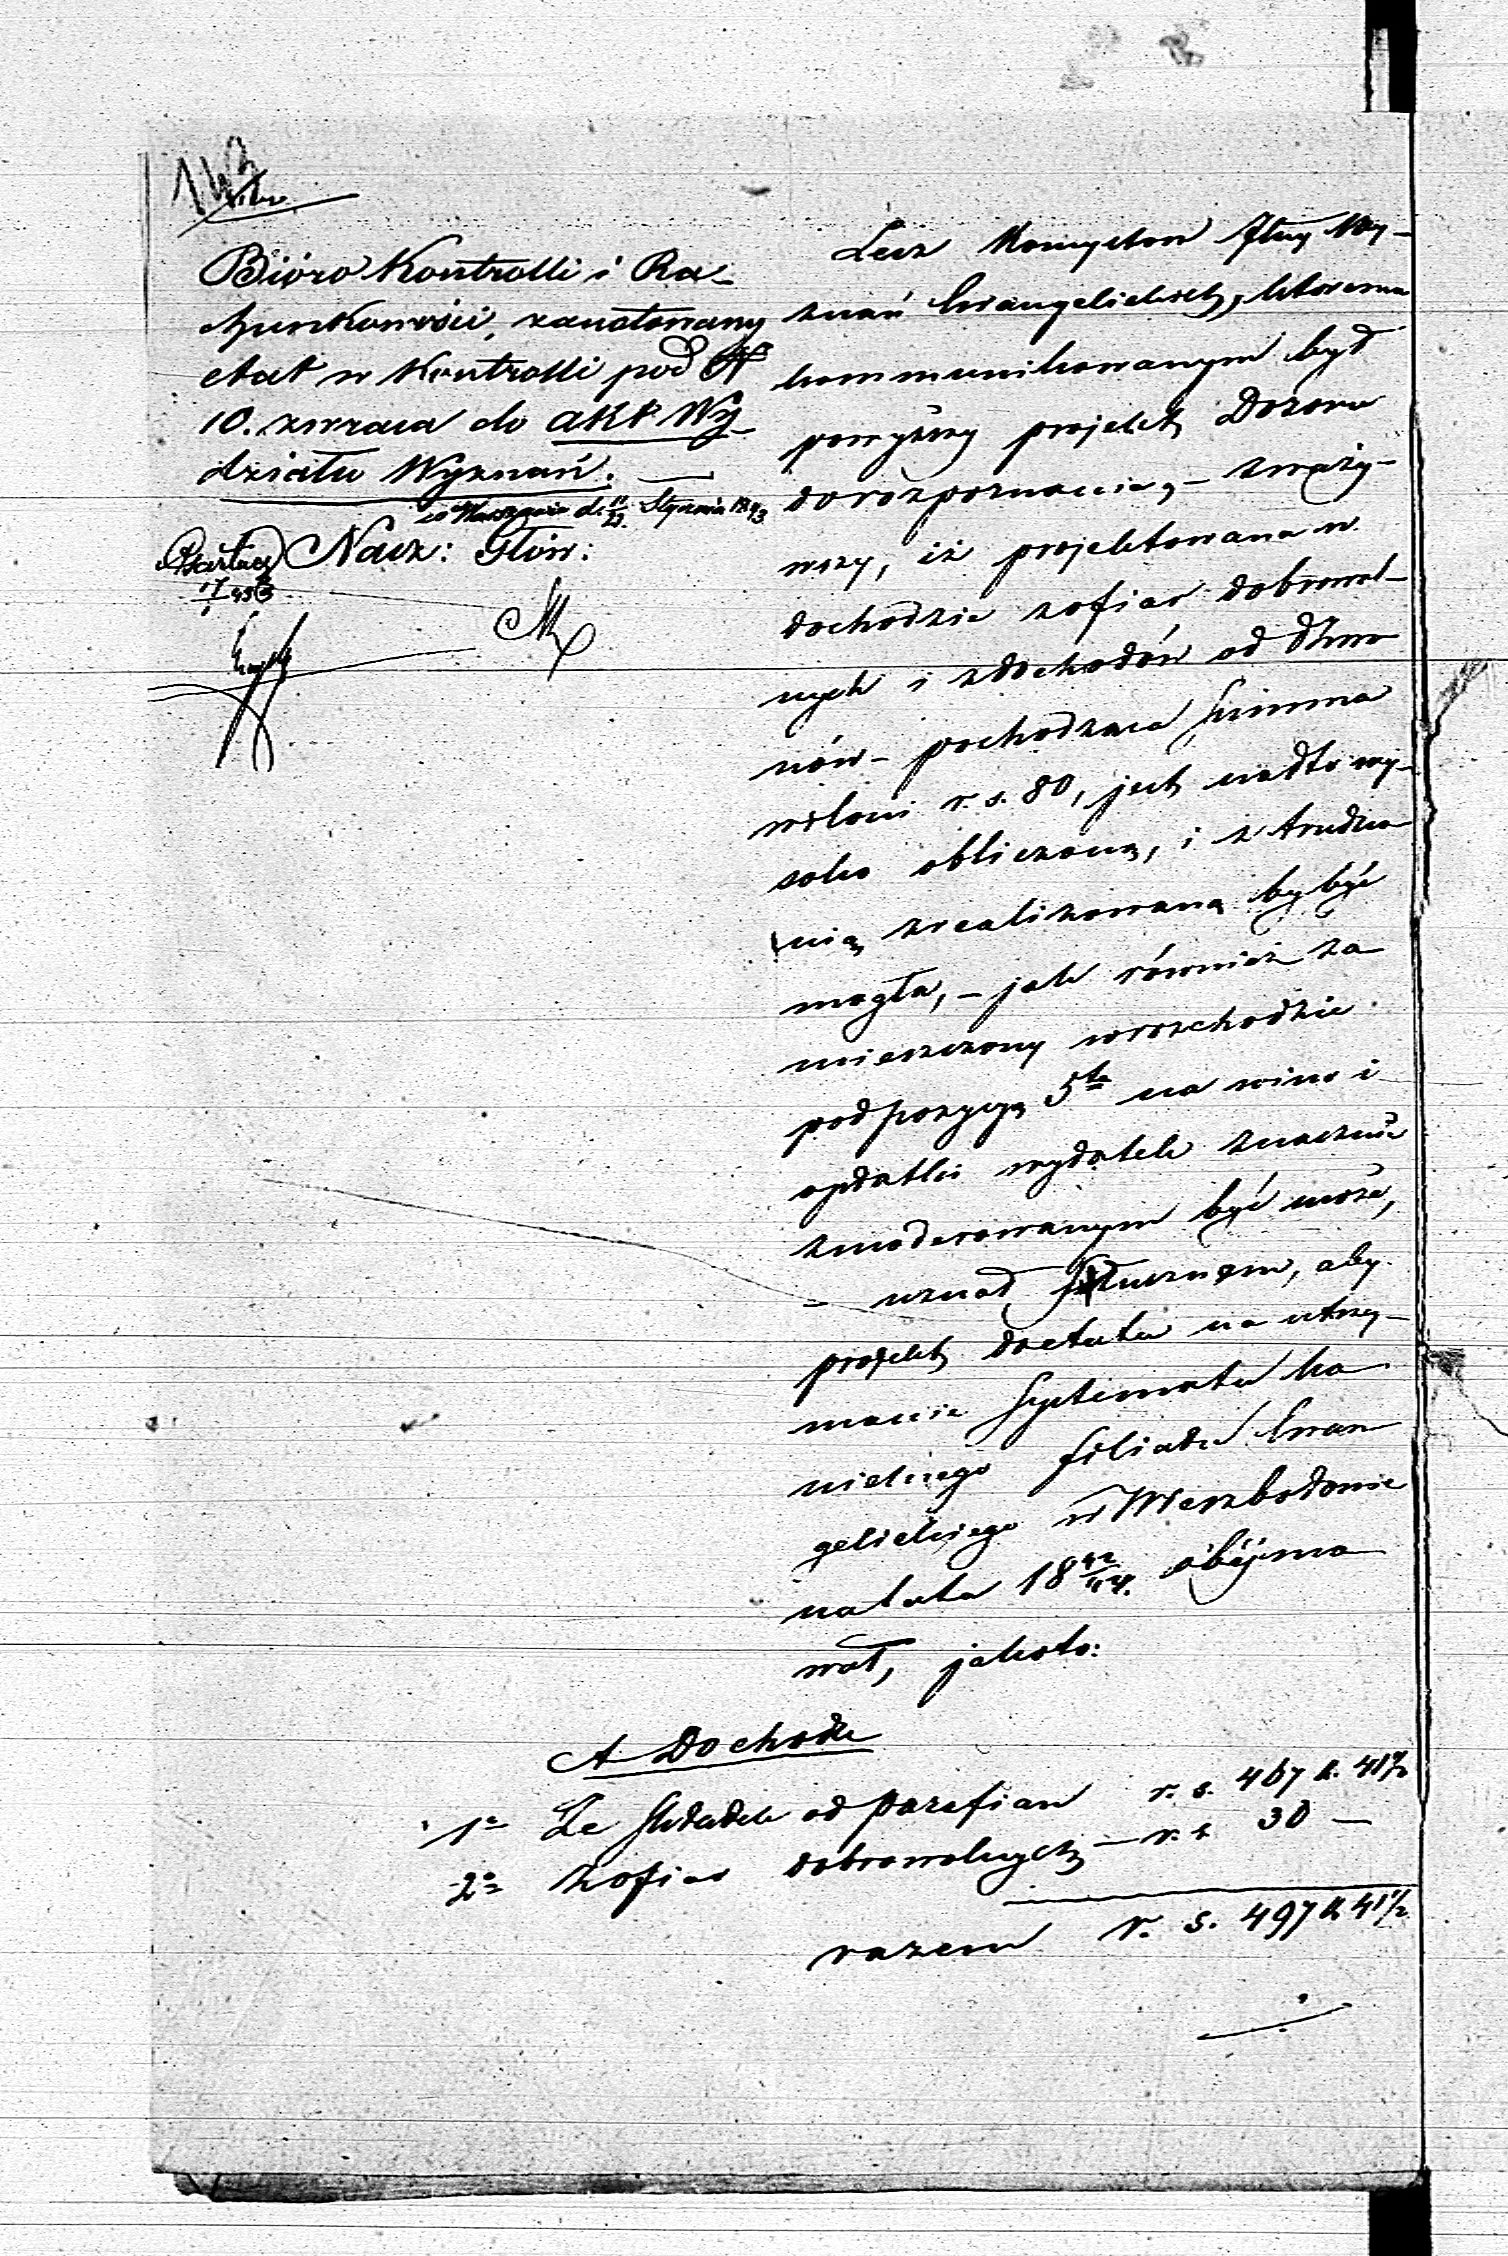 143
Bióro Kontrolli i Ra-
chunkowości, zanotowany
etat w Kontrolli pod N
10. zwraca do akt Wy-
działu Wyznań. —
w Warszawie d. 11/23 Stycznia 1843
Nacz: Głów:
Lecz Konsystorz Jlny Wy-
znań Ewangelickich, któremu
kommunikowanym był
powyższy projekt Dozoru
do rozpoznania, – zważy-
wszy, iż projektowana w
dochodzie z ofiar dobrowol-
nych i z dochodów od dzwo
nów – pochodząca summa
w ilości r. s. 80, jest nadto wy-
soko obliczoną, i z trudno
nią zrealizowaną by być
mogła, – jak również za
mieszczony w rozchodzie
pod pozycyą 5tą na wino i
opłatki wydatek znacznie
zmoderowanym być może,
– uznał słusznem, aby
projekt do etatu na utrzy-
manie Systematu ko
nielnego filiału Ewan
gelickiego w Wierzbołowie
na lata 18 42/44. obejmo
wał, jakoto:
A Dochodu
1o Ze składek od parafian r. s. 467 k. 41 1/2
2o z ofiar dobrowolnych – r. s. 30 —
razem r. s. 497 k 41 1/2